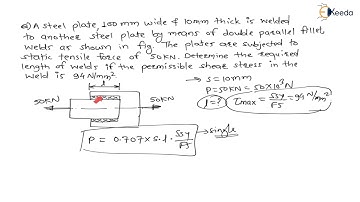 Ekeeda
Q) A steel plate, 100 mm wide & 10mm thick is welded
to another steel plate by means of double parallel fillet
welds as shown in fig. The plates are subjected to
static tensile force of 50KN. Determine the required
length of welds if the permissible shear stress in the
weld is 94 N/mm²
→ S = 10mm
P = 50KN = 50×10³N
l = ?
τmax = Ssy/FS = 94 N/mm²
l
50KN
50KN
P = 0.707 × S . l . Ssy/FS → single